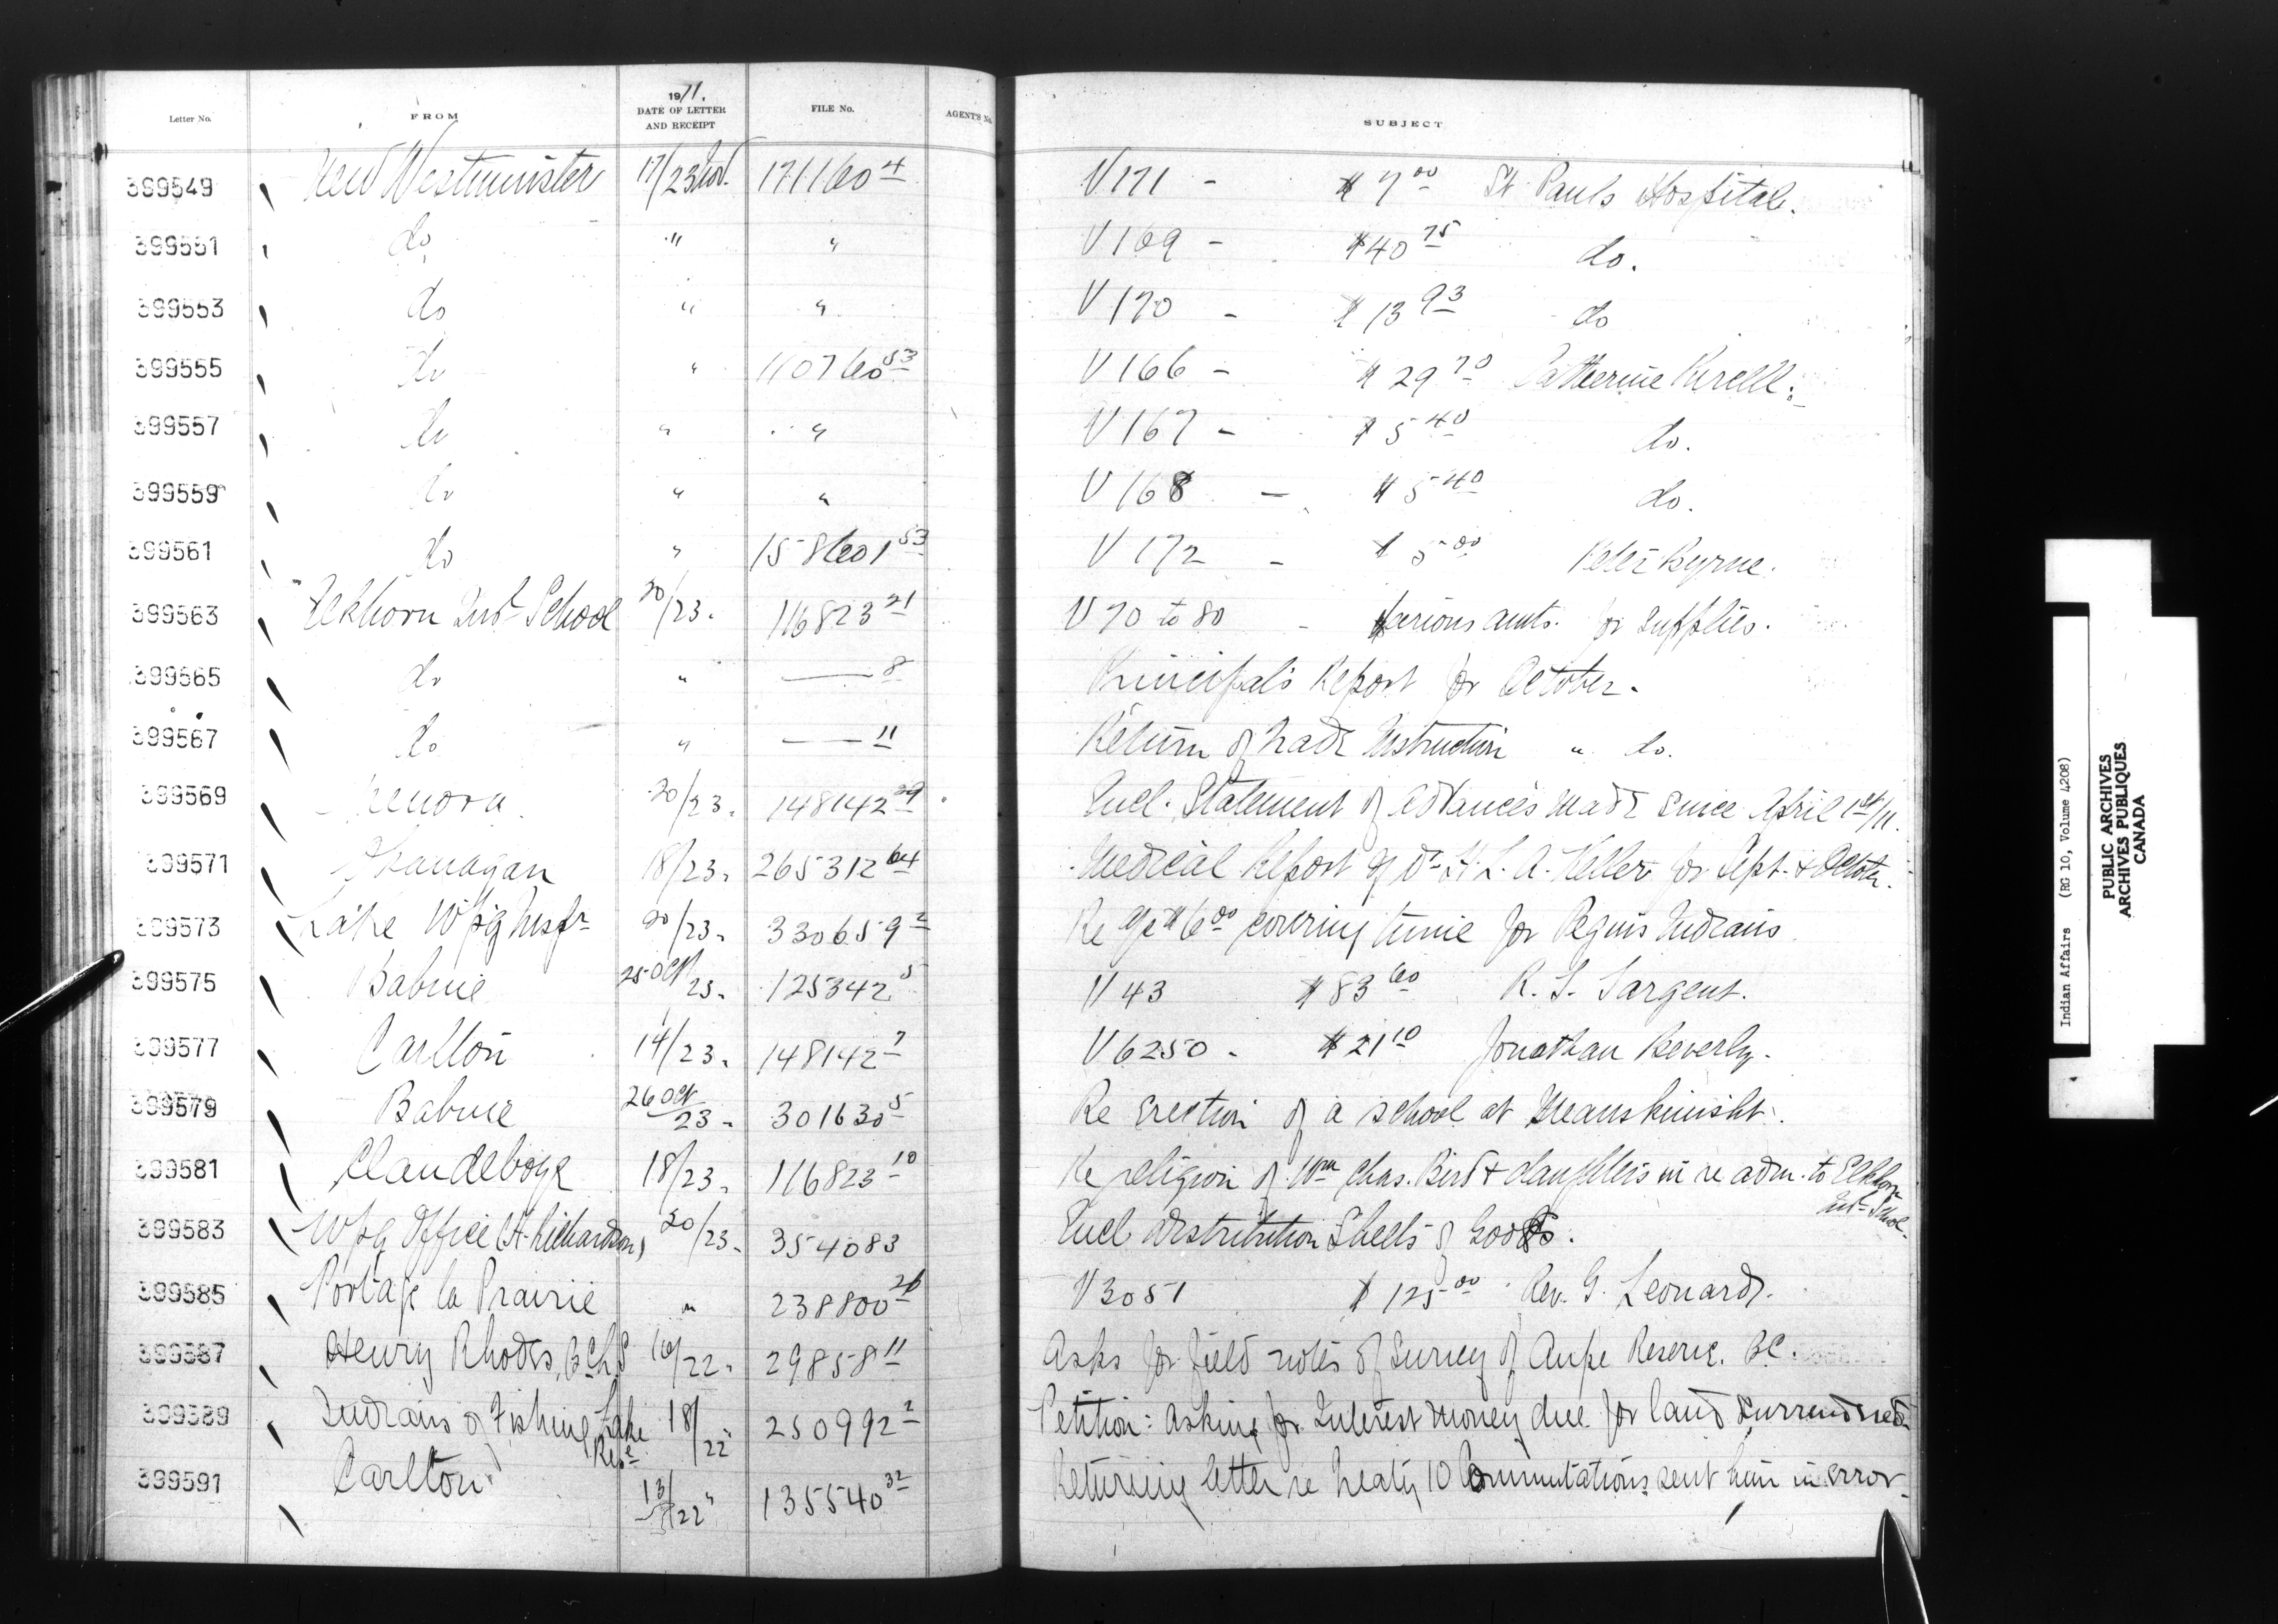 Letter No. FROM 1911. DATE OF LETTER AND RECEIPT FILE No. AGENT'S No. SUBJECT
399549 New Westminster 17/23 Nov. 171160 4 V 171 - $7 00 St Pauls Hospital.
399551 do " " V 169 - $40 75 do.
399553 do " " V 170 - $13 93 do
399555 do " 110760 53 V 166 - $29 70 Catherine
399557 do " " V 167 - $5 40 do.
399559 do " " V 168 - $5 40 do.
399561 do " 158601 53 V 172 - $5 00 Peter Byrne.
399563 Elkhorn Ind School 20/23. 116823 21 V 70 to 80 - Various amts. for supplies.
399565 do " — 8 Principal's Report for October.
399567 do " — 11 Return of Trade Instruction " do.
399569 Kenora 20/23. 148142 29 Encl. Statement of advances made since April 1st/11.
399571 Okanagan 18/23. 265312 64 Medical Report of Dr H. L. A. Keller for Sept. & October.
399573 Lake Wpg Inspr 20/23. 330659 2 Re a/c $6 00 covering twine for Peguis Indians
399575 Babine 25 Oct 23. 125342 5 V 43 $83 60 R. S. Sargent.
399577 Carlton 14/23. 148142 7 V 6250. $21 10 Jonathan Beverly.
399579 Babine 26 Oct 23. 301630 5 Re erection of a school at Meanskinisht.
399581 Clandeboye 18/23. 116823 10 Re religion of Wm Chas. Bird & daughters in re adm. to Elkhorn
Ind School.
399583 Wpg Office (H. Richardson) 20/23. 354083 Encl distribution Sheets of Goods.
399585 Portage la Prairie " 238800 26 V 3051 $125 00 Rev. G. Leonard.
399587 Henry Rhodes, 16/22. 29858 11 Asks for field notes of Survey of Reserve. BC.
399589 Indians of Fishing Lake 18/22 250992 2 Petition: asking for Interest money due for land surrendered
Rese
399591 Carlton 13/22 135540 32 Returning letter re Treaty 10 Commutations sent him in error.
Indian Affairs (RG 10, Volume 4208)
PUBLIC ARCHIVES
ARCHIVES PUBLIQUES
CANADA